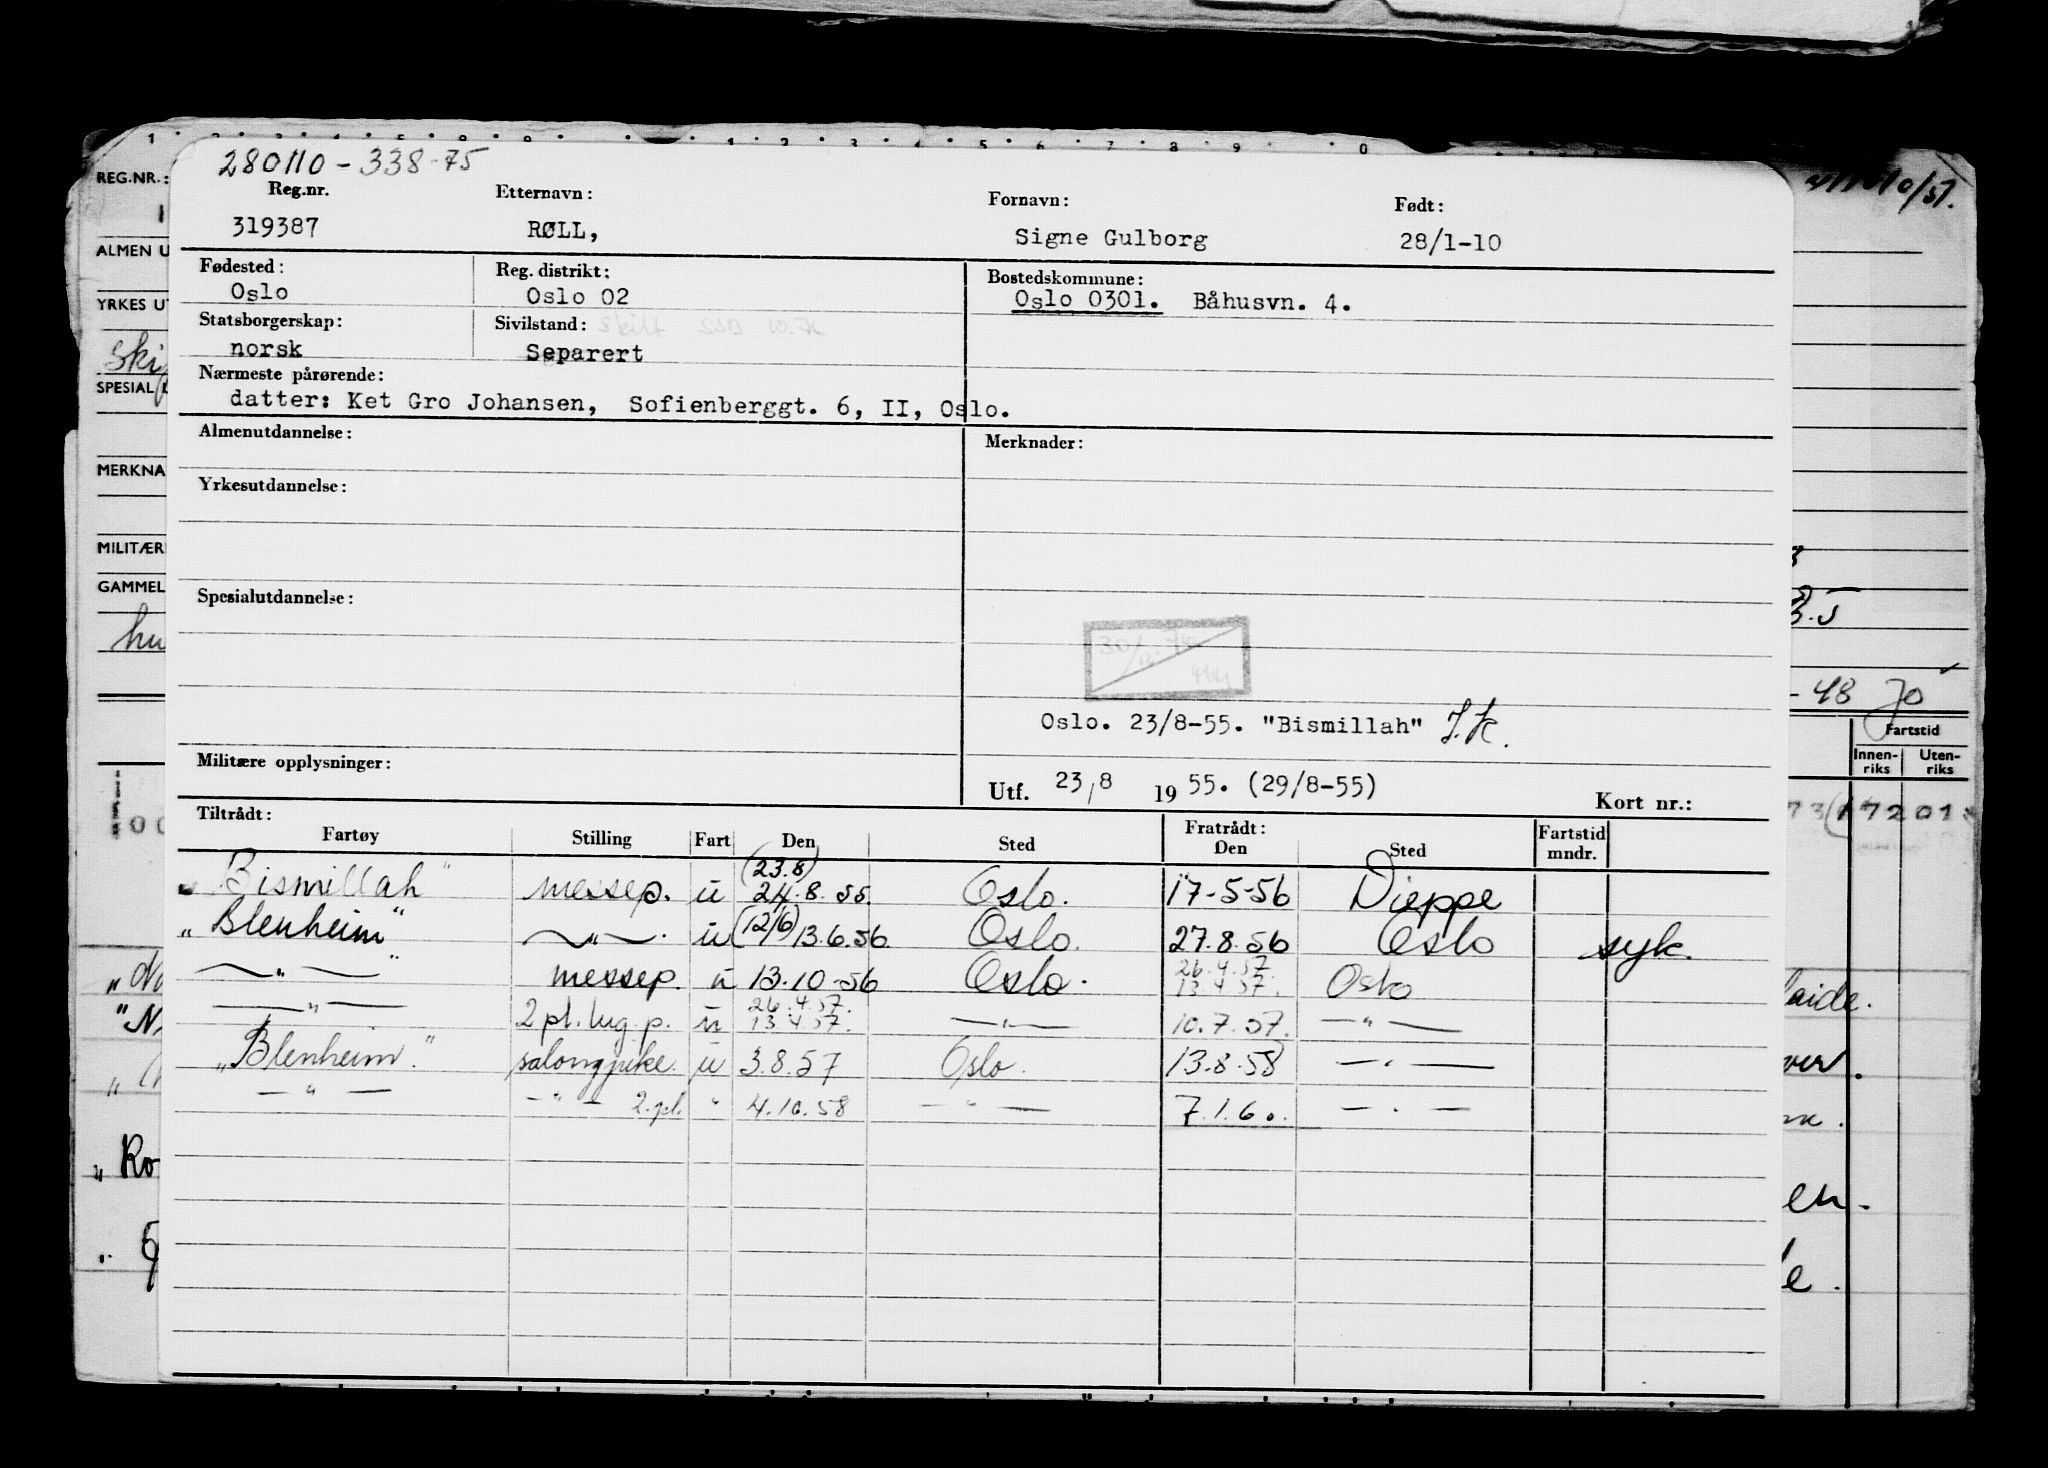 280110-338-75
Reg.nr. Etternavn: Fornavn: Født:
319387 RØLL, Signe Gulborg 28/1-10
Fødested: Reg. distrikt: Bostedskommune:
Oslo Oslo 02 Oslo 0301. Båhusvn. 4.
Statsborgerskap: Sivilstand: Skilt
norsk Separert
Nærmeste pårørende:
datter: Ket Gro Johansen, Sofienberggt. 6, II, Oslo.
Almenutdannelse: Merknader:
Yrkesutdannelse:
Spesialutdannelse:
Oslo. 23/8-55. "Bismillah" J.K.
Militære opplysninger:
Utf. 23/8 1955. (29/8-55) Kort nr.:
Tiltrådt: Fratrådt: Fartstid
Fartøy Stilling Fart Den Sted Den Sted mndr.
"Bismillah" messep. u (23.8) 24.8.55. Oslo. 17-5-56 Dieppe
"Blenheim" —"—. u (12/6) 13.6.56 Oslo. 27.8.56 Oslo syk.
—"— messep. u 13.10-56 Oslo. 26.4.57. 13.4.57. Oslo
—"— 2 pl. lug.p. u 26.4.57. 13.4.57. —"— 10.7.57. —"—
"Blenheim." salongpike. u 3.8.57 Oslo. 13.8.58 —"—
—"— —"— 2.pl. " 4.10.58 —"— 7.1.60. —"—
REG.NR.:
ALMEN U
YRKES UT
SPESIAL
MERKNA
MILITÆR
GAMMEL
hu
-48 Jo
Fartstid
Innen-riks Uten-riks
"Ro
laide.
ver.
en.
e.